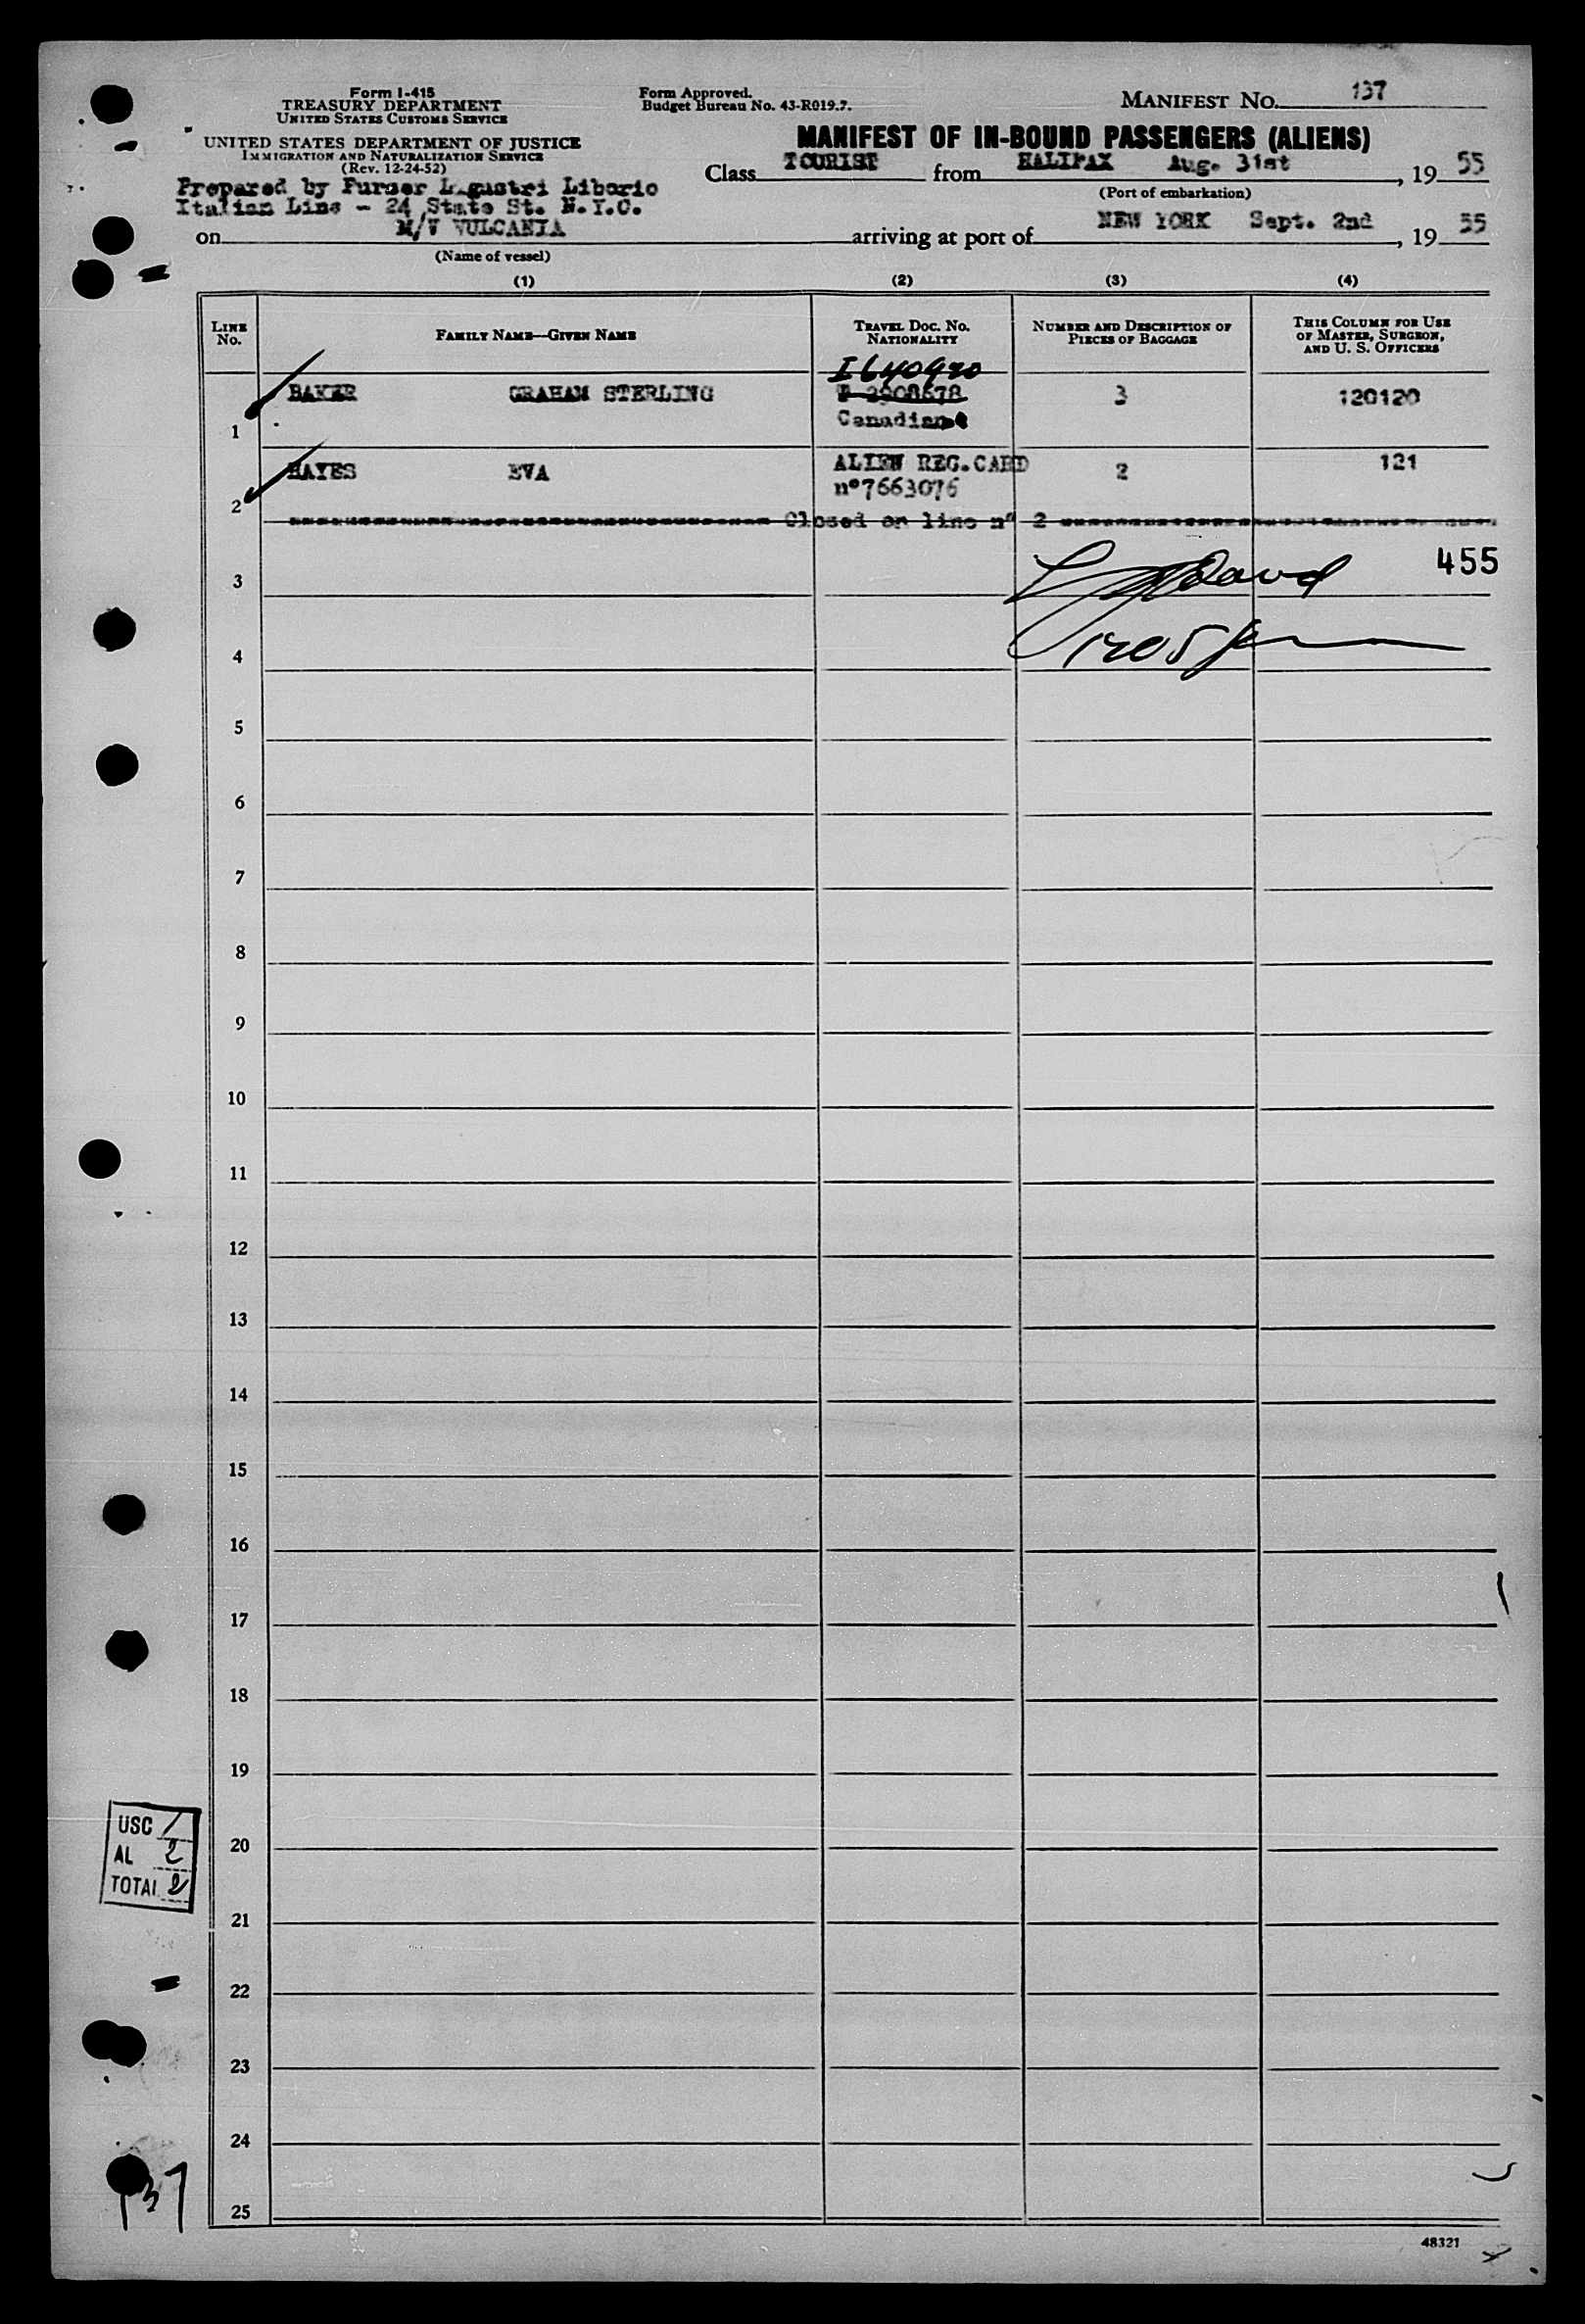 Form I-415
TREASURY DEPARTMENT
UNITED STATES CUSTOMS SERVICE
UNITED STATES DEPARTMENT OF JUSTICE
IMMIGRATION AND NATURALIZATION SERVICE
(Rev. 12-24-52)
Form Approved.
Budget Bureau No. 43-R019.7.
MANIFEST NO. 137
MANIFEST OF IN-BOUND PASSENGERS (ALIENS)
Class TOURIST from HALIFAX Aug. 31st, 19 55
(Port of embarkation)
Prepared by Purser Ligustri Liborio
Italian Line - 24 State St. N.Y.C.
on M/V VULCANIA arriving at port of NEW YORK Sept. 2nd, 19 55
(Name of vessel)
(1) (2) (3) (4)
LINE NO.
FAMILY NAME—GIVEN NAME
TRAVEL DOC. NO.
NATIONALITY
NUMBER AND DESCRIPTION OF
PIECES OF BAGGAGE
THIS COLUMN FOR USE
OF MASTER, SURGEON,
AND U. S. OFFICERS
I640920
1 BAKER GRAHAM STERLING 2908678 3 120120
Canadian
2 HAYES EVA ALIEN REG.CARD 2 121
nº7663076
Closed on line nº 2
455
3
4
5
6
7
8
9
10
11
12
13
14
15
16
17
18
19
20
21
22
23
24
25
USC /
AL 2
TOTAL 2
137
48321